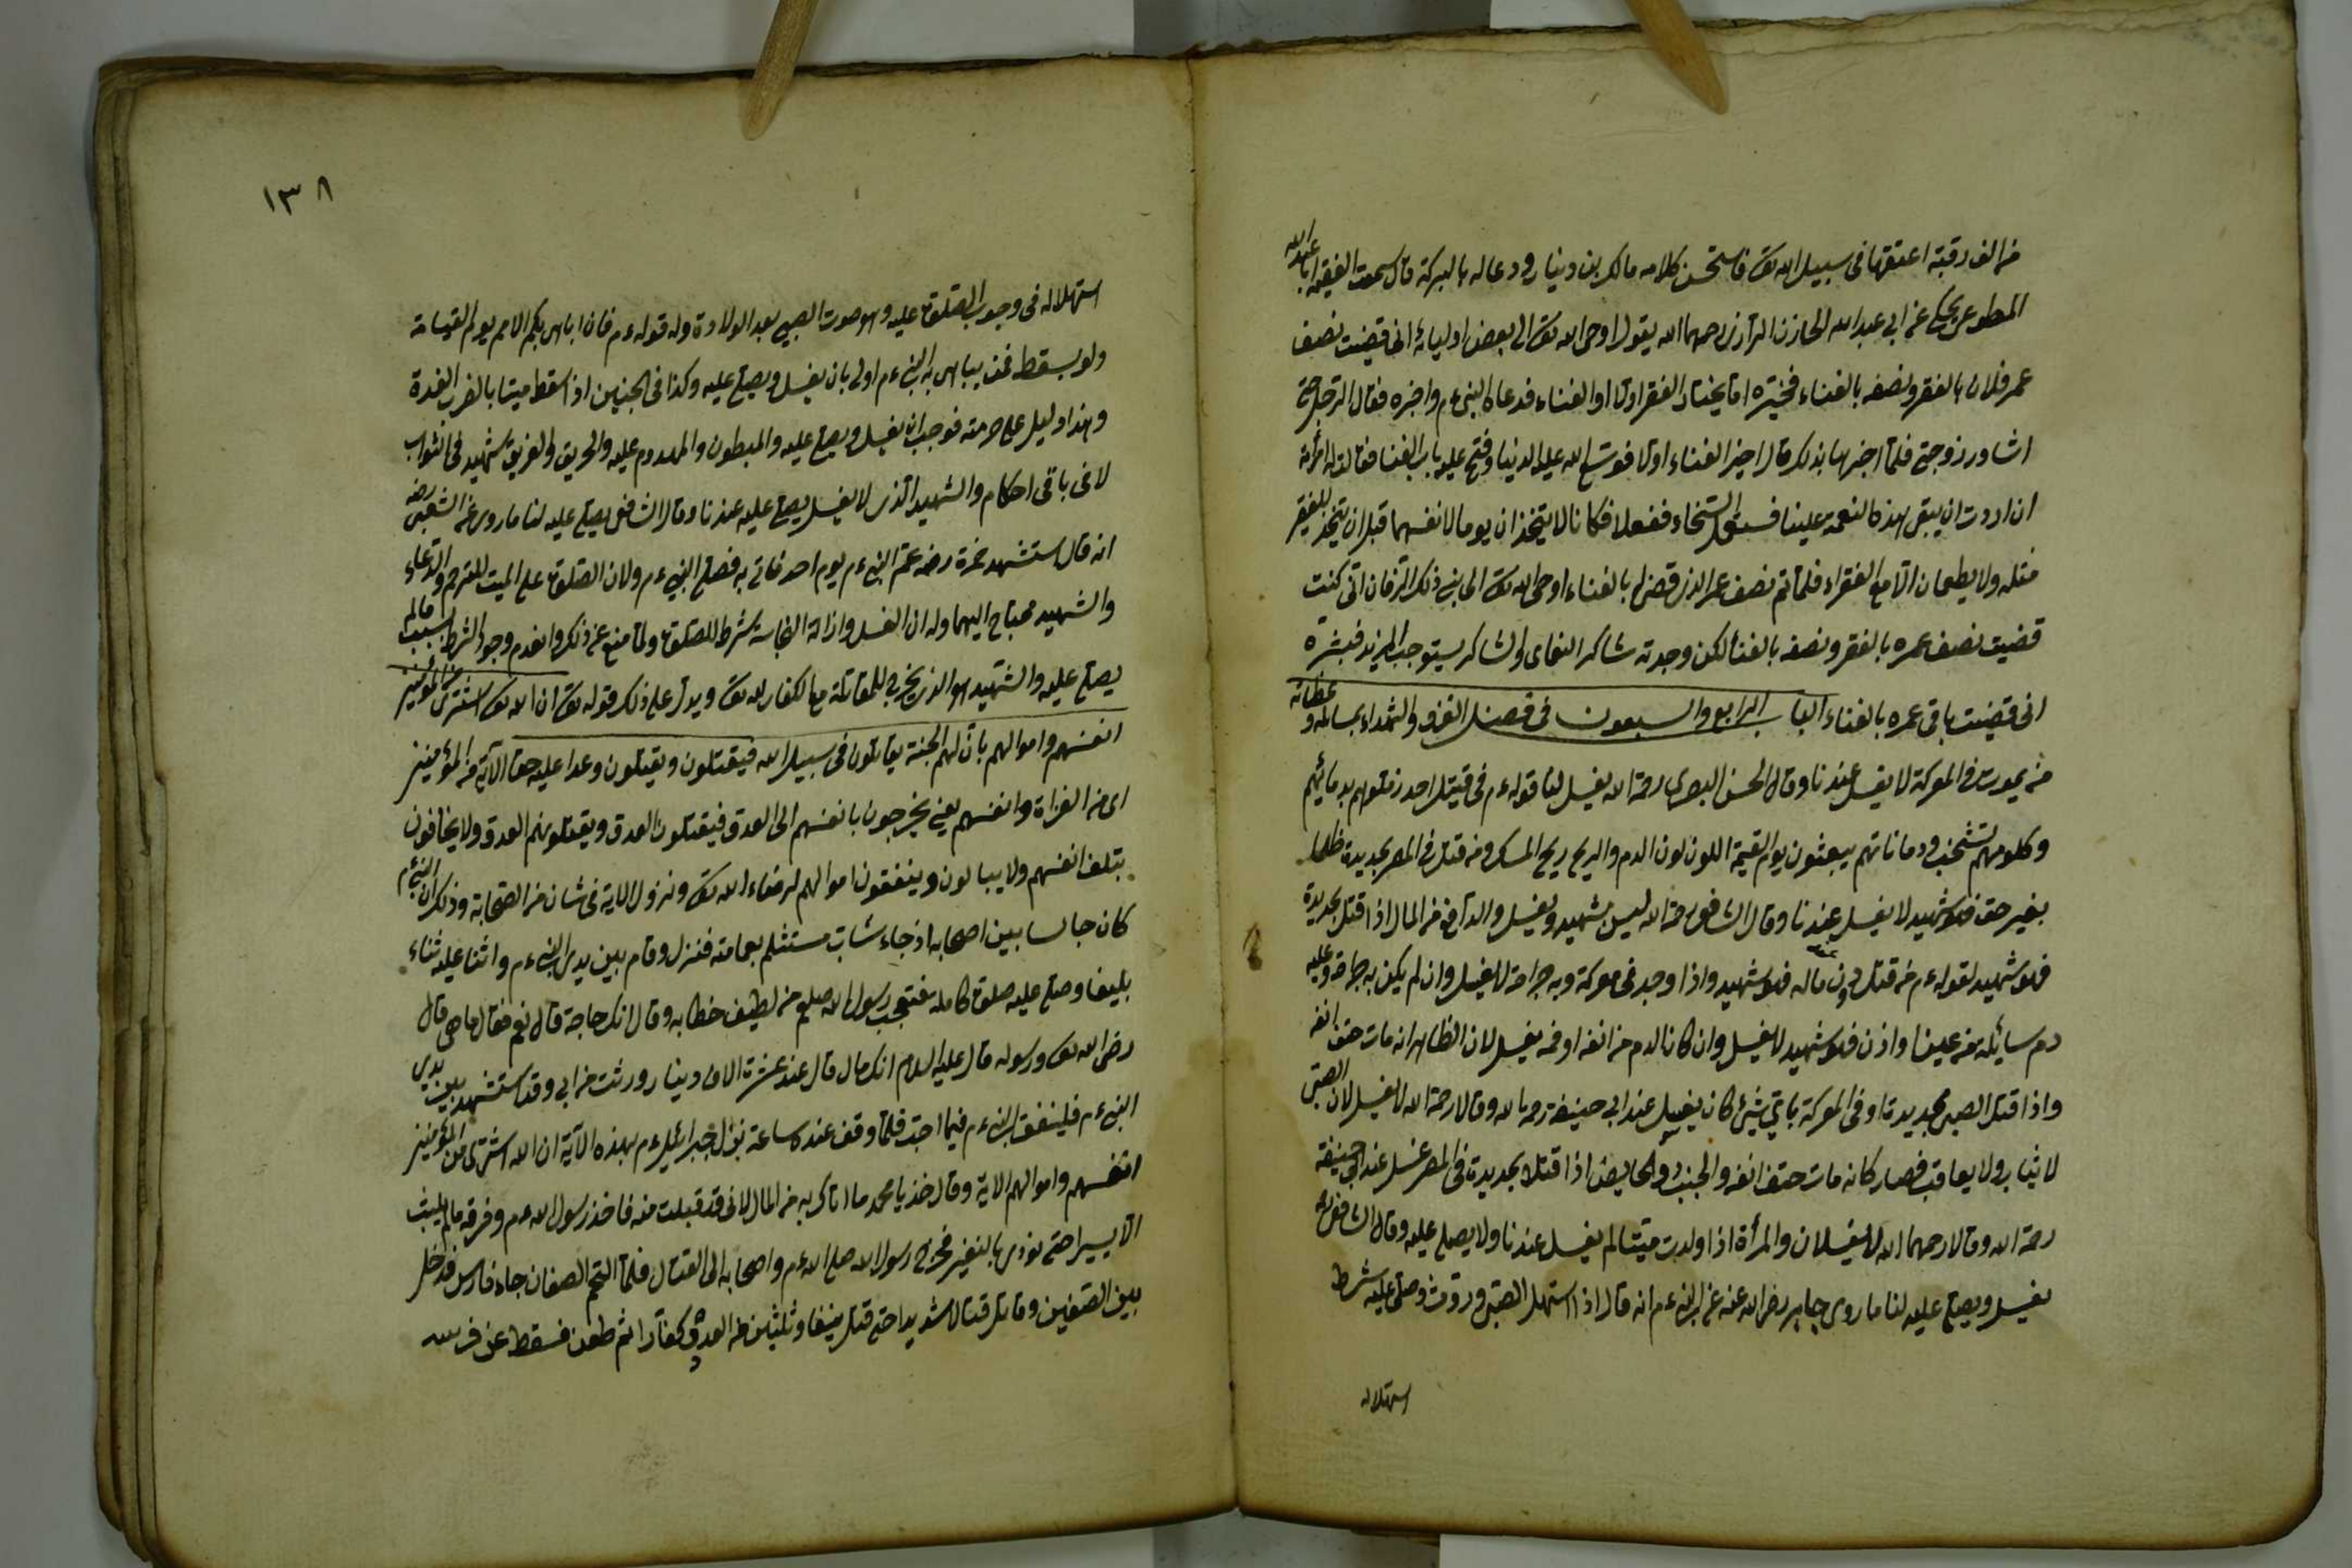 من الف رقبة اعتقتها فى سبيل الله تع فاستحسن كلامه مالك بن دينار ودعا له بالبركة قال سمعت الفقيه ابا عبد الله
المطوعى يحكى عن ابى عبد الله الحازن الرازى رحمهما الله يقول اوحى الله تع الى بعض اوليائه انى قضيت نصف
عمر فلان بالفقر ونصفه بالغناء فخيّره امّا يختار الفقر اولا او الغناء فدعاه النبى ءم واخبره فقال الرجل حتى
اشاور زوجتى فلمّا اخبرها بذلك قال اختر الغناء اولا فوسّع الله عليه الدنيا وفتح عليه باب الغنا فقالت له امرأته
ان اردت ان يبقى هذه النعمة علينا فاستعمل السخاء ففعلا فكانا لا يتخذان يوما لانفسهما قبل ان يتخذ للفقير
مثله ولا يطعمان الّا مع الفقراء فلمّا تم نصف عمر الذى قضى له بالغناء اوحى الله تع الى نبى ذلك الزمان انّى كنت
قضيت نصف عمره بالفقر ونصفه بالغنا لكن وجدته شاكر النعماى والشاكر يستوجب المزيد فبشره
انى قضيت باقى عمره بالغناء الباب الرابع والسبعون فى فضل الغزو والشهداء بسالة وعطائه
من يموت فى المعركة لا يغسل عندنا وقال الحسن البصرى رحمة الله يغسل لنا قوله ءم فى قتيل احد زملوهم بدمائهم
وكلومهم تشخب ودماناتهم يبعثون يوم القيمة اللون لون الدم والريح ريح المسك ومن قتل فى المصر بحديدة ظلما
بغير حق فهو شهيد لا يغسل عندنا وقال الشافعى رحمة الله ليس بشهيد ويغسل والدافع من المال اذا قتل بحديدة
فهو شهيد لقوله ءم من قتل دون ماله فهو شهيد واذا وجد فى معركة وبه جراحة لا يغسل وان لم يكن به جراحة وعليه
دم سائلة من عينه او اذن فهو شهيد لا يغسل وان كان الدم من انفه او فمه يغسل لان الظاهر انه مات حتف انفه
واذا قتل الصبى بحديدة او فى المعركة باىّ شئ كان يغسل عند ابى حنيفة رحمه الله وقالا رحمة الله لا يغسل لان الصبى
لا يثاب ولا يعاقب فصار كانه مات حتف انفه والجنب والحايض اذا قتلا بحديدة فى المصر غسل عند ابى حنيفة
رحمة الله وقالا رحمهما الله لا يغسلان والمرأة اذا ولدت ميّتا لم يغسل عندنا ولا يصلى عليه وقال الشافعى
يغسل ويصلى عليه لنا ما روى جابر رضى الله عنه عن النبى ءم انه قال اذا استهل الصبى وروث وصلى عليه شرط
استهلاله
١٣٨
استهلاله فى وجوب الصلوة عليه وهو صوت الصبى بعد الولادة وله قوله ءم فانى اباهى بكم الامم يوم القيمة
ولو بسقط فمن يباهى به النبى ءم اولى بان يغسل ويصلى عليه وكذا فى الجنين اذا سقط ميتا بالضرب الغرة
وهذا دليل على حرمته فوجب ان يغسل ويصلى عليه والمبطون والمهدوم عليه والحريق والغريق شهيد فى الثواب
لا فى باقى احكام والشهيد الذى لا يغسل يصلى عليه عندنا وقال الشافعى يصلى عليه لنا ما روى عن الشعبى رضه
انه قال استشهد حمزة رضه عمّ النبى ءم يوم احد فاتى به فصلى النبى ءم ولان الصلوة على الميت للترحم والدعاء
والشهيد محتاج اليهما وله ان الغسل وازالة النجاسة شرط للصلوة ولمّا منع عن ذلك وانعدم وجود الشرط بسببه فالم
يصلى عليه والشهيد هو الذى يخرج للمقاتلة مع الكفار لله تع ويدل على ذلك قوله تع ان الله تع اشترى من المؤمنين
انفسهم واموالهم بان لهم الجنة يقاتلون فى سبيل الله فيقتلون ويقتلون وعدا عليه حقا الآية من المؤمنين
اى من الغزاة وانفسهم يعنى يخرجون بانفسهم الى العدو فيقتلون العدو ويقتلونهم العدو ولا يخافون
بتلف انفسهم ولا يبالون وينفقون اموالهم لرضاء الله تع ونزول الاية فى شان من الصحابة وذلك ان النبى ءم
كان جالسا بين اصحابه اذ جاء شاب مستثلم بعمامته فنزل وقام بين يدى النبى ءم واثنا عليه ثناء
بليغا وصلى عليه صلوة كاملة فتعجب رسول الله صلعم من لطيف خطابه وقال الك حاجة قال نعم فقال ما هى قال
رضى الله تع ورسوله قال عليه السلام الك مال قال عند عشرة الاف دينار ورثت من ابى وقد استشهد بين يدى
النبى ءم فلينفق النبى ءم فيما احب فلمّا وقف عنده ساعة نزل جبرائيل ءم بهذه الآية ان الله اشترى من المؤمنين
انفسهم واموالهم الاية وقال خذ يا محمد ما اتاك به من المال لانى قد قبلت منه فاخذ رسول الله ءم وفرقه ما لم يلبث
الّا يسيرا حتى نودى بالنفير فخرج رسول الله صلى الله ءم واصحابه الى القتال فلمّا التحم الصفان جاء فارس فدخل
بين الصفين وقاتل قتالا شديدا حتى قتل نيفا وثلثين من العدو كفارا ثم طعن فسقط عن فرسه